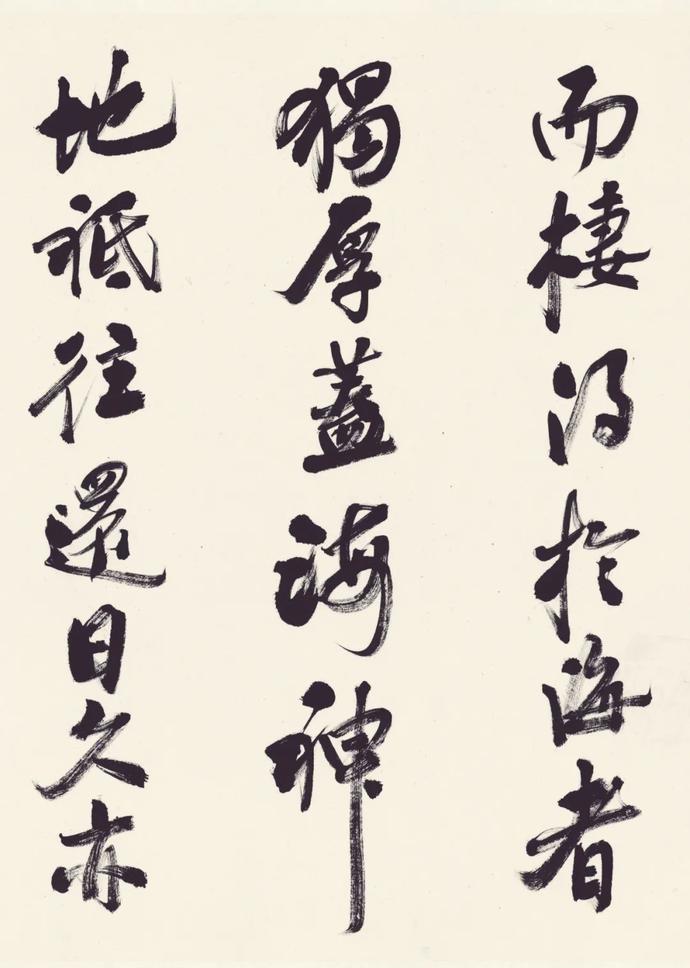 而棲得於海者
獨厚蓋海神
地祇往還日久亦